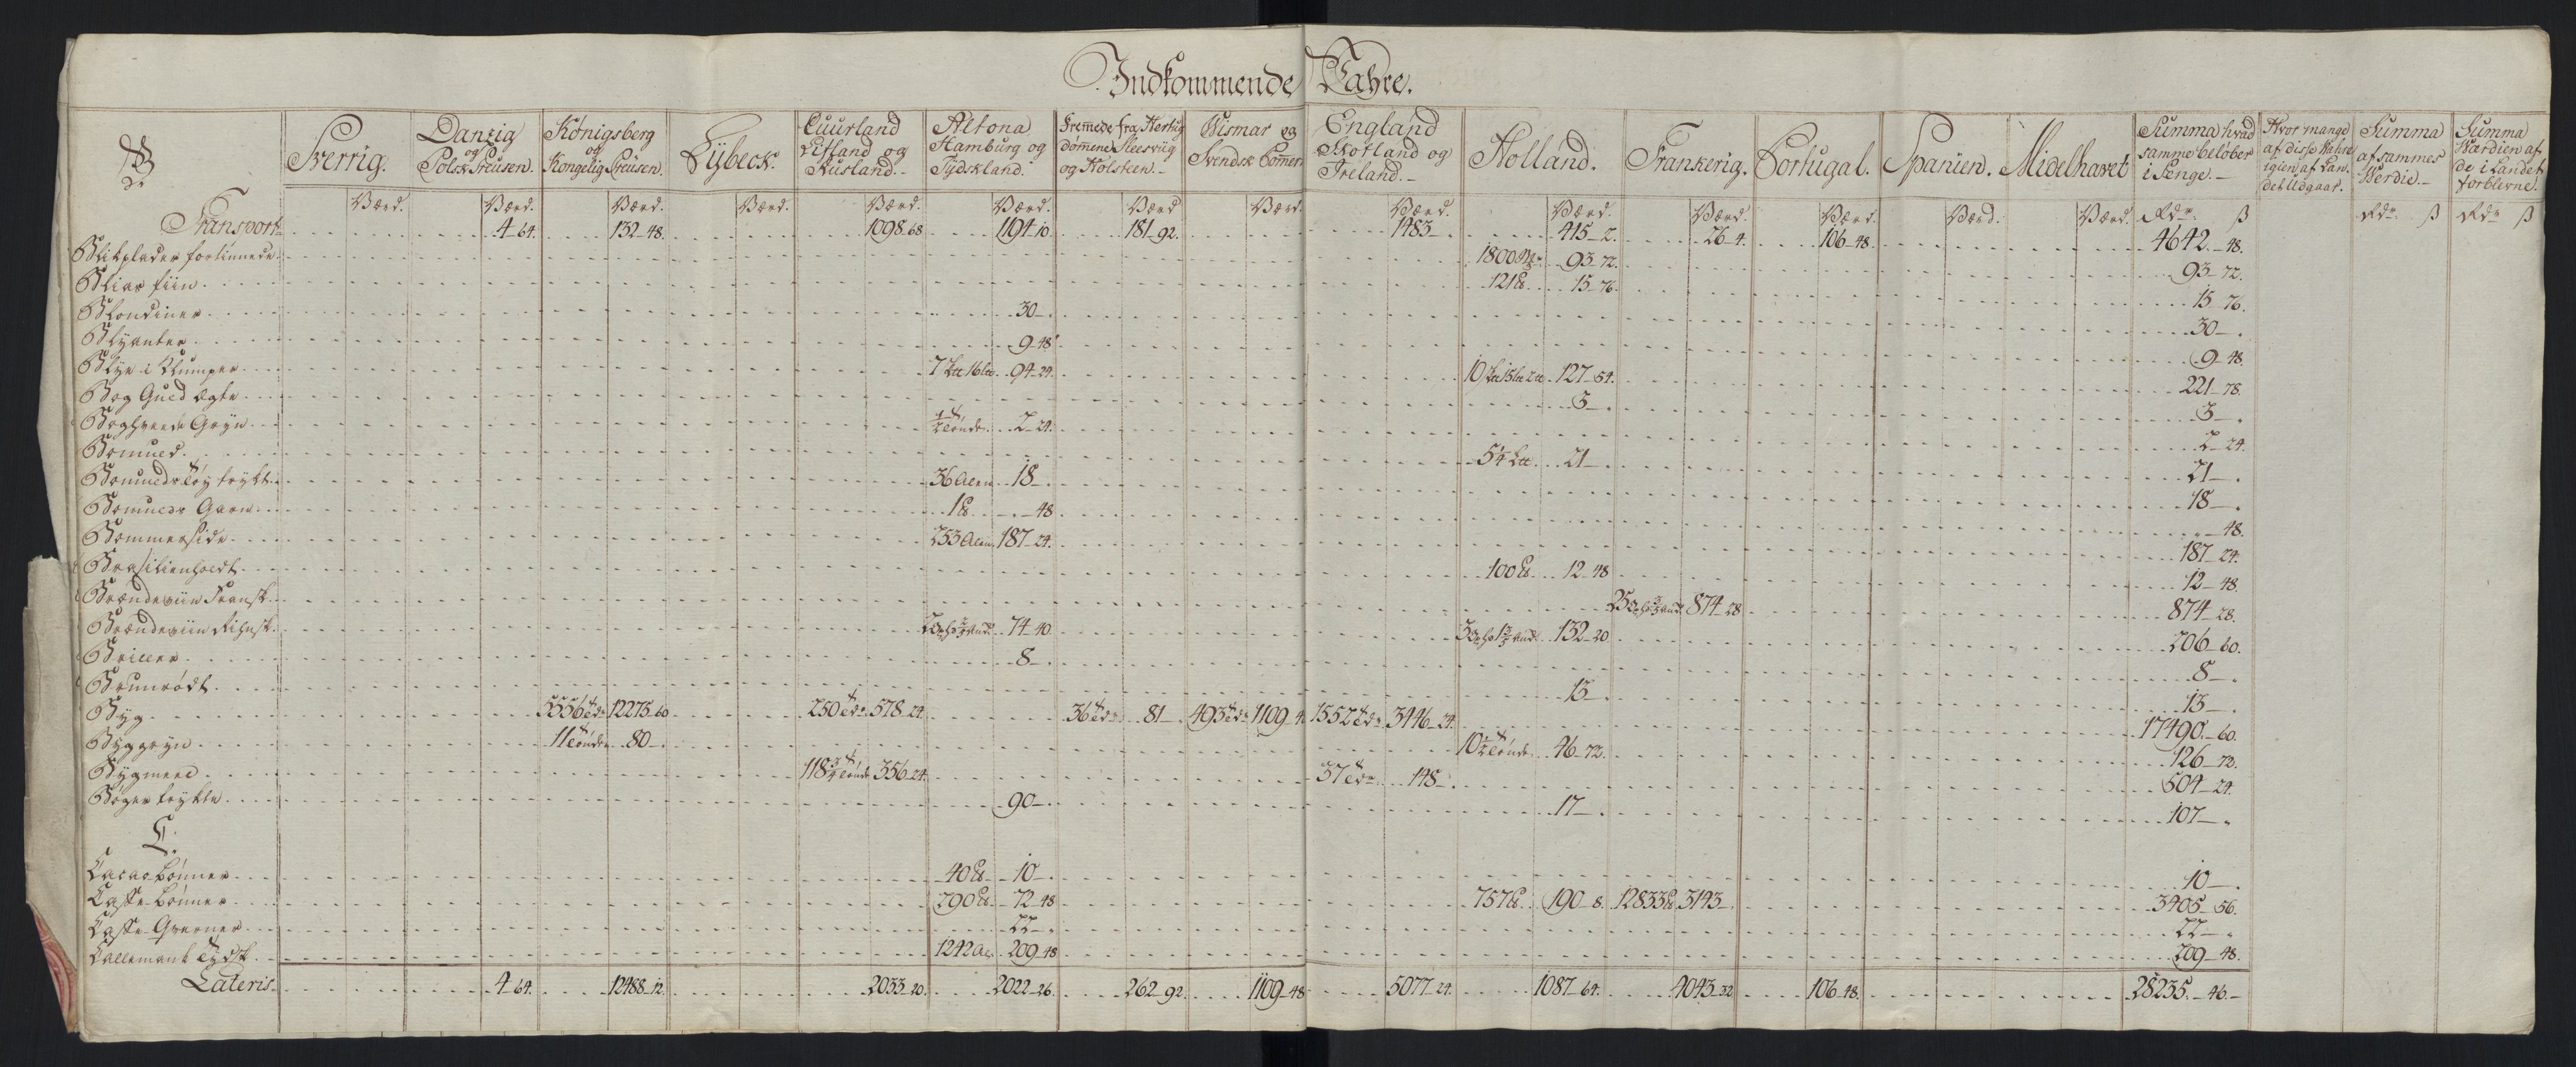 Indkommende Wahre.
B
Sverrig.
Danzig og Polsk Preusen.
Königsberg og Kongelig Preusen.
Lÿbeck.
Cuurland Lifland og Rusland.
Altona Hamburg og Tydskland.
Fremede fra Hertug dømene Sleesviig og Holsteen.
Wismar og Svendsk Pomern
England Skotland og Ireland.
Holland.
Frankerig.
Portugal.
Spanien.
Midelhavet
Summa hvad samme beløber i Penge.
Hvor mange af disse Wahre igien af Landet Udgaar.
Summa af sammes Werdie.
Summa Værdien af de i Landet forblevne.
Værd. Værd. Værd. Værd. Værd. Værd. Værd Værd. Værd. Værd. Værd. Værd. Værd. Værd. Rdr. ß Rdr. ß Rdr ß
Transport 4-64. 132-48. 1098-68 1194-10. 181-92. 1483- 415-2. 26-4. 106-48. 4642.-48.
Blikplader fortinnede 1800 93-72. 93-72.
Bliar fiin 121 ℔ 15-76. 15-76.
Blondiner 30-. 30-.
Blyanter 9-48 9-48.
Blye i Klumper 7 16 94-24. 10 15 127-54. 221-78.
Bog Guld ægte 3-. 3-.
Boghveede Gryn ½ tønde 2-24. 2-24.
Bomuld 5¼ 21-. 21-.
Bomulds Tøy trykt 36 Alen 18-. 18-.
Bomulds Garn 1 ℔ -48 -48.
Bommerside 253 Alen 187-24. 187-24.
Brasilienholdt 100 ℔ 12-48 12-48.
Brændeviin Fransk 25 874-28 874-28.
Brændeviin Rihnsk 74-40. 3 132-20 206-60.
Briller 8-. 8-.
Brunrødt 13-. 13-.
Byg 5556 tdr 12275-60 250 tdr 578-24. 36 tdr 81-. 493 tdr 1109-4 1552 tdr 3446-24. 17490.-60.
Byggryn 11 tønder 80-. 10½ tønde 46-72. 126-72.
Bygmeel 118¾ tønde 356-24. 37 tdr 148-. 504-24.
Bøger trykte 90-. 17-. 107-.
C.
Cacao bønner 40 ℔ 10-. 10-.
Caffe-bønner 290 ℔ 72-48 757 ℔ 190-8. 12833 ℔ 3143-. 3405-56.
Caffe-Qverner 22-. 22-.
Callemank Tydsk 1242 Al. 209-48 209-48.
Lateris 4-64. 12488-12. 2033-20. 2022-26. 262-92. 1109-48 5077-24. 1087-64. 4043-32 106-48. 28235.-46-